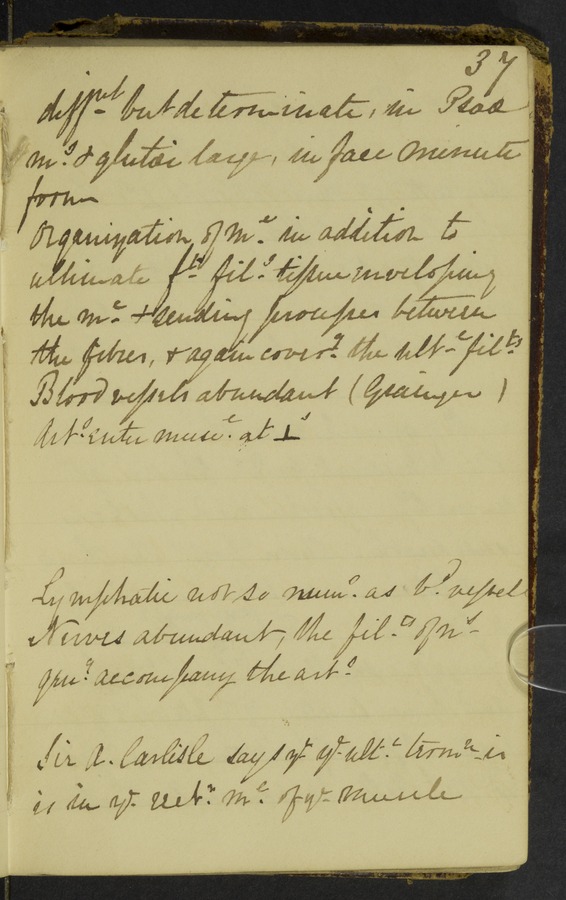 37
diff^nt but determinate, in Psoas
m^s & glutæi large, in face minute
form
Organization of m^e in addition to
ultimate f^ts fil^s tissue enveloping
the m^e & sending processes between
the fibres, & again cover^g the ult^e fil^ts
Blood vessels abundant (Grainger)
Art^s enter musc^e at ⊥^s
Lymphatic not so num^s as b^d vessels
Nerves abundant, the fil^ts of n^s
gen^y accompany the art^s
Sir A. Carlisle says y^t y^e ult^e term^n is
is in y^e m^e of y^e muscle